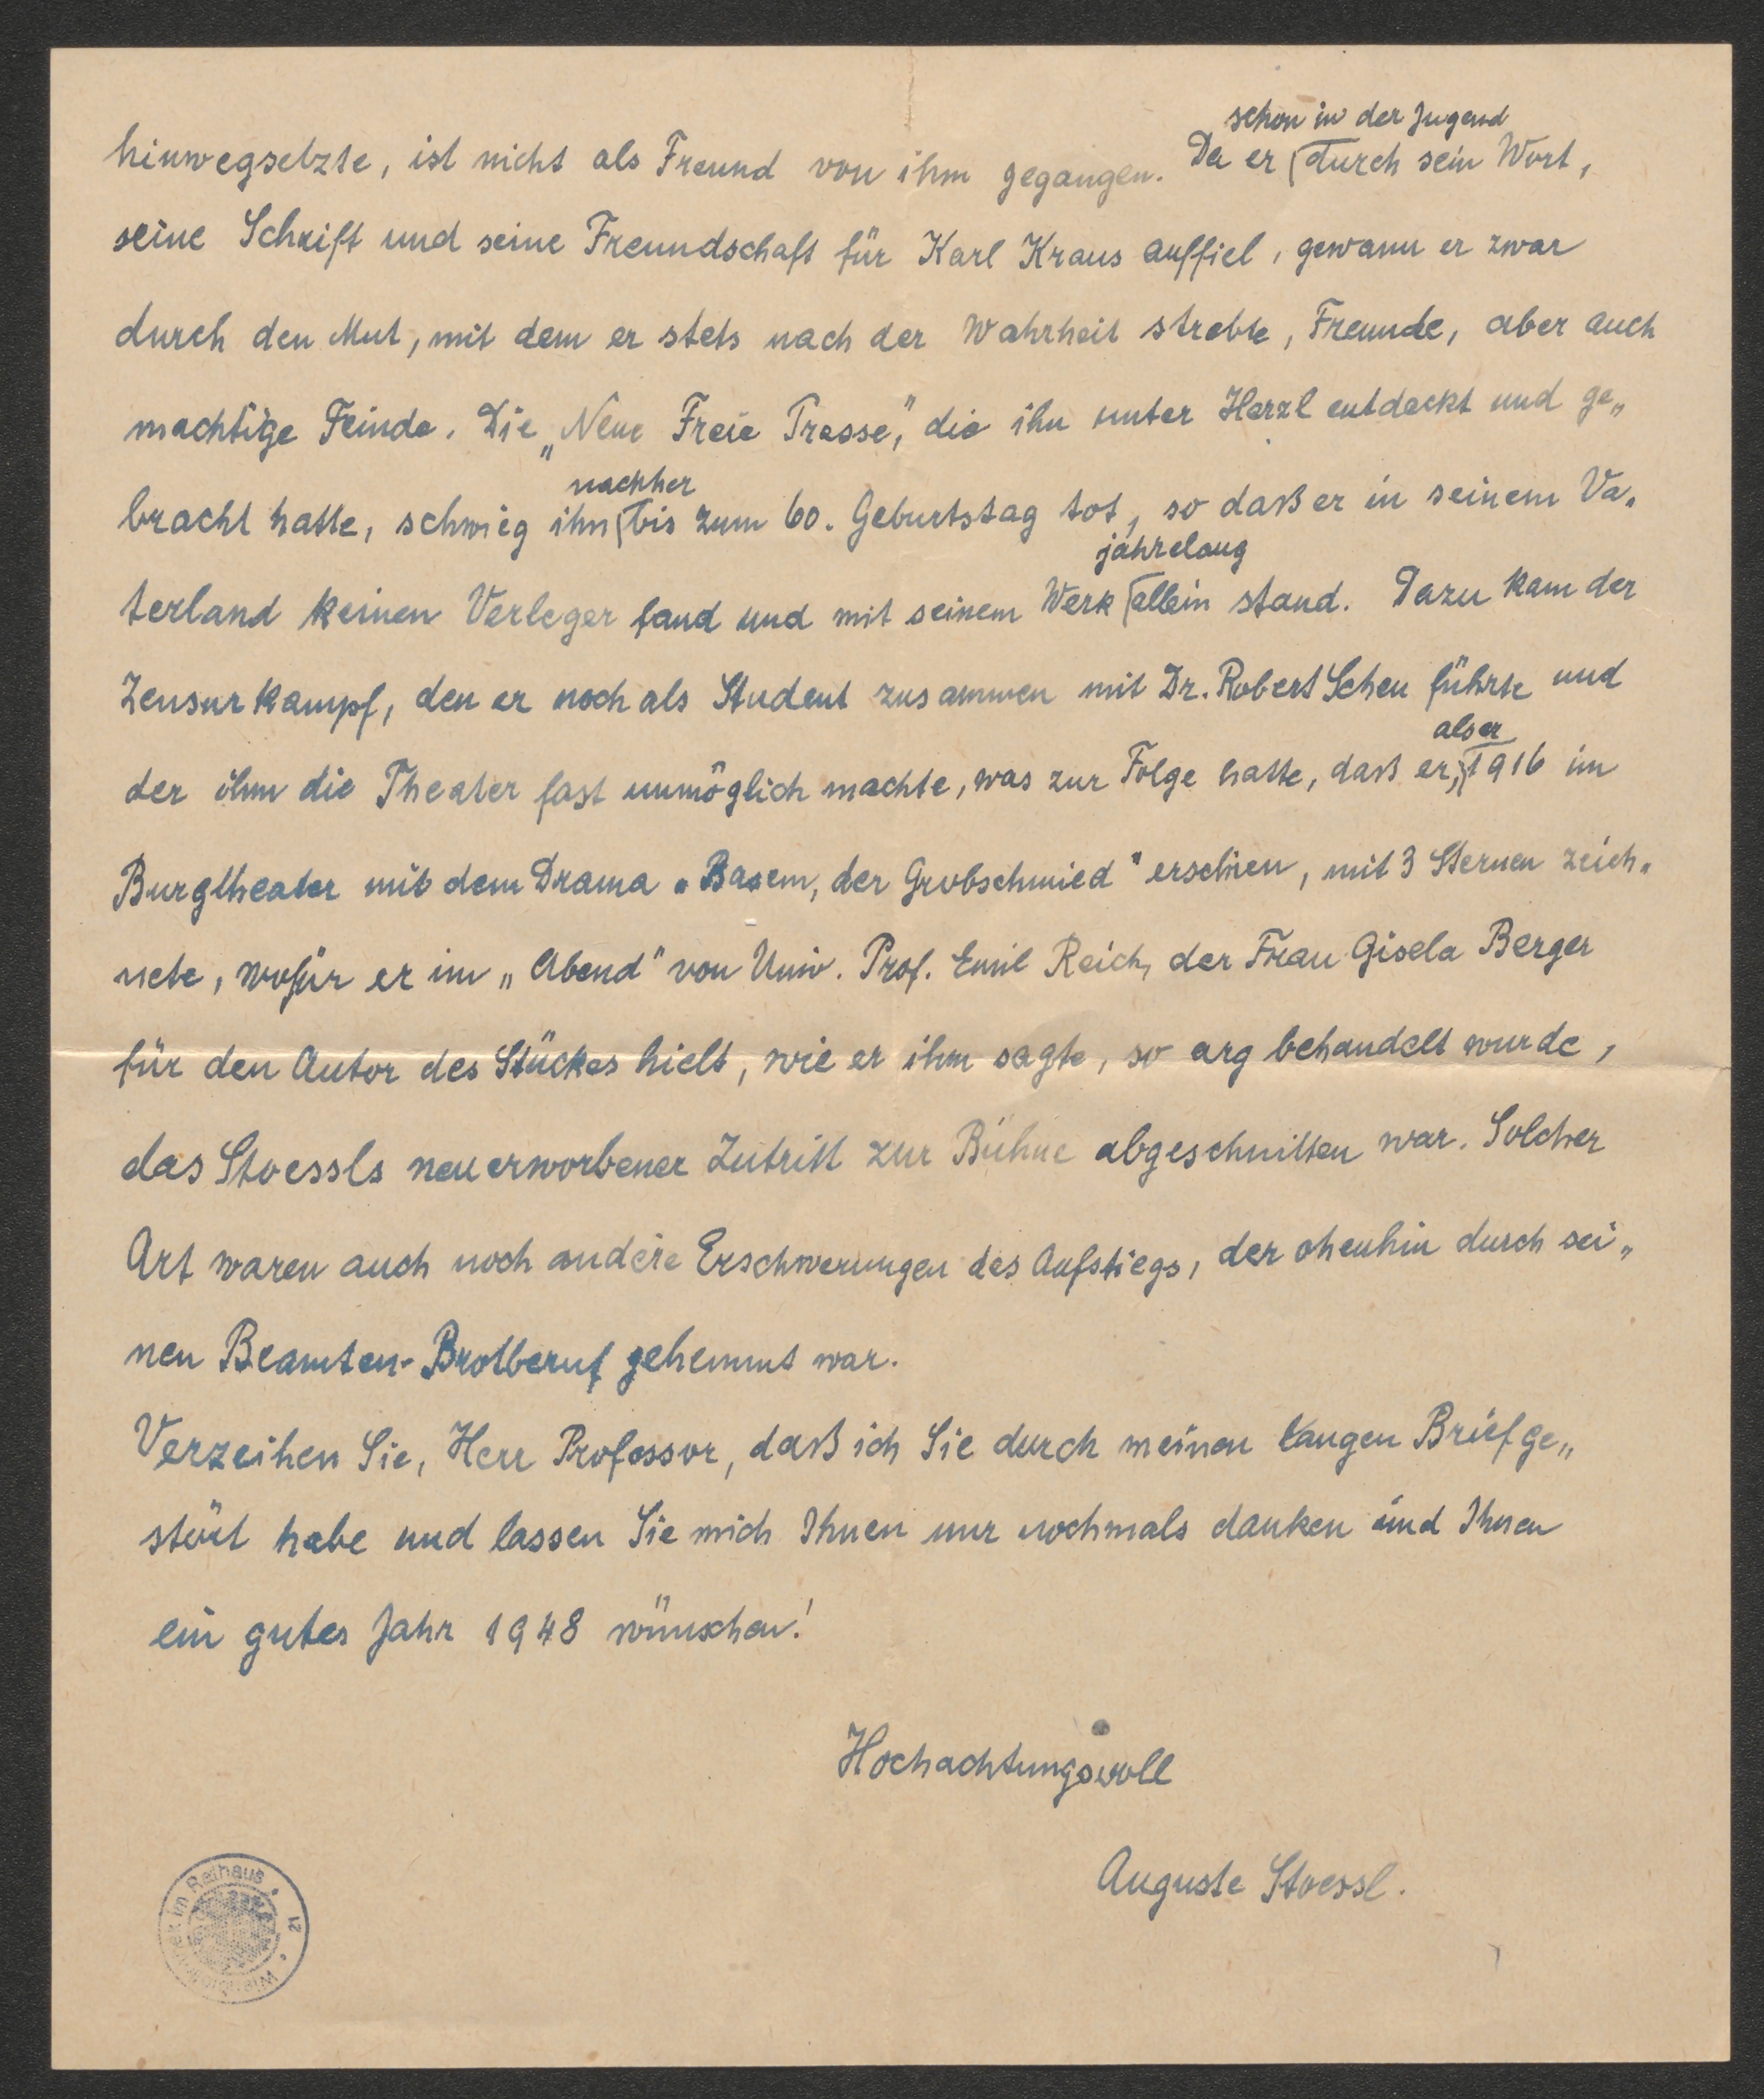 schon in der Jugend
hinwegsetzte, ist nicht als Freund von ihm gegangen. Da er durch sein Wort,
seine Schrift und seine Freundschaft für Karl Kraus auffiel, gewann er zwar
durch den Mut, mit dem er stets nach der Wahrheit strebte, Freunde, aber auch
machtige Feinde. Die „Neue Freie Presse," die ihn unter Herzl entdeckt und ge„
nachher
bracht hatte, schwieg ihn bis zum 60. Geburtstag tot, so daß er in seinem Va„
jahrelang
terland keinen Verleger fand und mit seinem Werk allein stand. Dazu kam der
Zensurkampf, den er noch als Student zusammen mit Dr. Robert Scheu führte und
als er
der ihm die Theater fast unmöglich machte, was zur Folge hatte, daß er, 1916 im
Burgtheater mit dem Drama „Basem, der Grobschmied" erschien, mit 3 Sternen zeich„
nete, wofür er im „Abend" von Univ. Prof. Emil Reich, der Frau Gisela Berger
für den Autor des Stückes hielt, wie er ihm sagte, so arg behandelt wurde,
das Stoessls neuerworbener Zutritt zur Bühne abgeschnitten war. Solcher
Art waren auch noch andere Erschwerungen des Aufstiegs, der ohenhin durch sei„
nen Beamten-Brotberuf gehemmt war.
Verzeihen Sie, Herr Professor, daß ich Sie durch meinen langen Brief ge„
stört habe und lassen Sie mich Ihnen nur nochmals danken und Ihnen
ein gutes Jahr 1948 wünschen!
Hochachtungsvoll
Auguste Stoessl.
im Rathaus
12